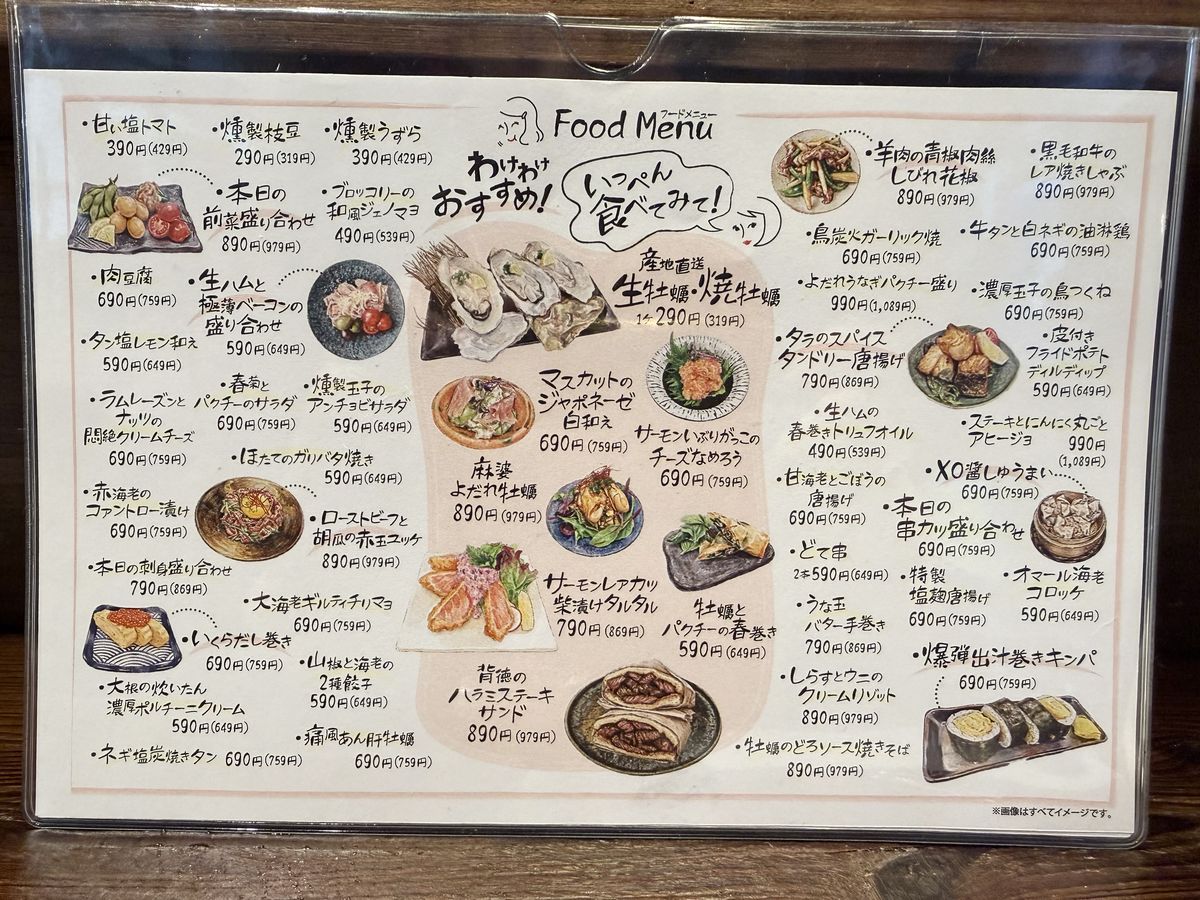 Food Menu
フードメニュー
わけわけ
おすすめ!
いっぺん
食べてみて!
・甘い塩トマト
390円(429円)
・燻製枝豆
290円(319円)
・燻製うずら
390円(429円)
・本日の
前菜盛り合わせ
890円(979円)
・ブロッコリーの
和風ジェノマヨ
490円(539円)
・肉豆腐
690円(759円)
・生ハムと
極薄ベーコンの
盛り合わせ
590円(649円)
・タン塩レモン和え
590円(649円)
・ラムレーズンと
ナッツの
悶絶クリームチーズ
690円(759円)
・春菊と
パクチーのサラダ
690円(759円)
・燻製玉子の
アンチョビサラダ
590円(649円)
・ほたてのガリバタ焼き
590円(649円)
・赤海老の
コアントロー漬け
690円(759円)
・ローストビーフと
胡瓜の赤玉ユッケ
890円(979円)
・本日の刺身盛り合わせ
790円(869円)
・大海老ギルティチリマヨ
690円(759円)
・いくらだし巻き
690円(759円)
・山椒と海老の
2種餃子
590円(649円)
・大根の炊いたん
濃厚ポルチーニクリーム
590円(649円)
・痛風あん肝牡蠣
690円(759円)
・ネギ塩炭焼きタン 690円(759円)
産地直送
生牡蠣・焼牡蠣
1ケ290円(319円)
マスカットの
ジャポネーゼ
白和え
690円(759円)
サーモンいぶりがっこの
チーズなめろう
690円(759円)
麻婆
よだれ牡蠣
890円(979円)
サーモンレアカツ
柴漬けタルタル
790円(869円)
牡蠣と
パクチーの春巻き
590円(649円)
背徳の
ハラミステーキ
サンド
890円(979円)
・羊肉の青椒肉絲
しびれ花椒
890円(979円)
・黒毛和牛の
レア焼きしゃぶ
890円(979円)
・鳥炭火ガーリック焼
690円(759円)
・牛タンと白ネギの油淋鶏
690円(759円)
・よだれうなぎパクチー盛り
990円(1,089円)
・濃厚玉子の鳥つくね
690円(759円)
・タラのスパイス
タンドリー唐揚げ
790円(869円)
・皮付き
フライドポテト
ディルディップ
590円(649円)
・生ハムの
春巻きトリュフオイル
490円(539円)
・ステーキとにんにく丸ごと
アヒージョ
990円
(1,089円)
・甘海老とごぼうの
唐揚げ
690円(759円)
・XO醬しゅうまい
690円(759円)
・本日の
串カツ盛り合わせ
690円(759円)
・どて串
2本590円(649円)
・特製
塩麹唐揚げ
690円(759円)
・オマール海老
コロッケ
590円(649円)
・うな玉
バター手巻き
790円(869円)
・爆弾出汁巻きキンパ
690円(759円)
・しらすとウニの
クリームリゾット
890円(979円)
・牡蠣のどろソース焼きそば
890円(979円)
※画像はすべてイメージです。